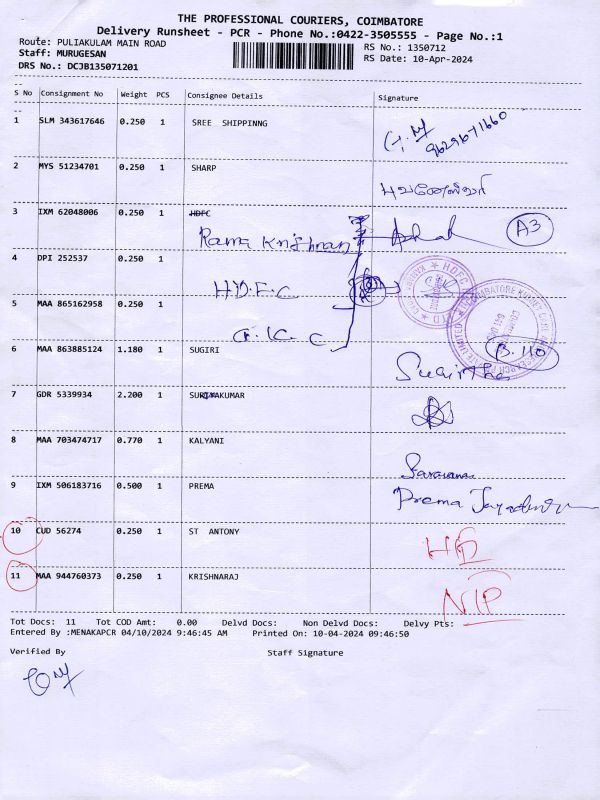 THE PROFESSIONAL COURIERS, COIMBATORE
Delivery Runsheet - PCR - Phone No.:0422-3505555 - Page No.:1
Route: PULIAKULAM MAIN ROAD
RS No.: 1350712
Staff: MURUGESAN
RS Date: 10-Apr-2024
DRS No.: DCJB135071201
S No Consignment No Weight PCS Consignee Details Signature
1 SLM 343617646 0.250 1 SREE SHIPPINNG
2 MYS 51234701 0.250 1 SHARP
3 IXM 62048006 0.250 1 HDFC
Rama Krishnan A3
4 DPI 252537 0.250 1
H.D.F.C
5 MAA 865162958 0.250 1
G.K.C
B.110
6 MAA 863885124 1.180 1 SUGIRI
7 GDR 5339934 2.200 1 SURIYAKUMAR
8 MAA 703474717 0.770 1 KALYANI
Saravanan
9 IXM 506183716 0.500 1 PREMA Prema
10 CUD 56274 0.250 1 ST ANTONY
11 MAA 944760373 0.250 1 KRISHNARAJ
Tot Docs: 11 Tot COD Amt: 0.00 Delvd Docs: Non Delvd Docs: Delvy Pts:
Entered By :MENAKAPCR 04/10/2024 9:46:45 AM Printed On: 10-04-2024 09:46:50
Verified By Staff Signature